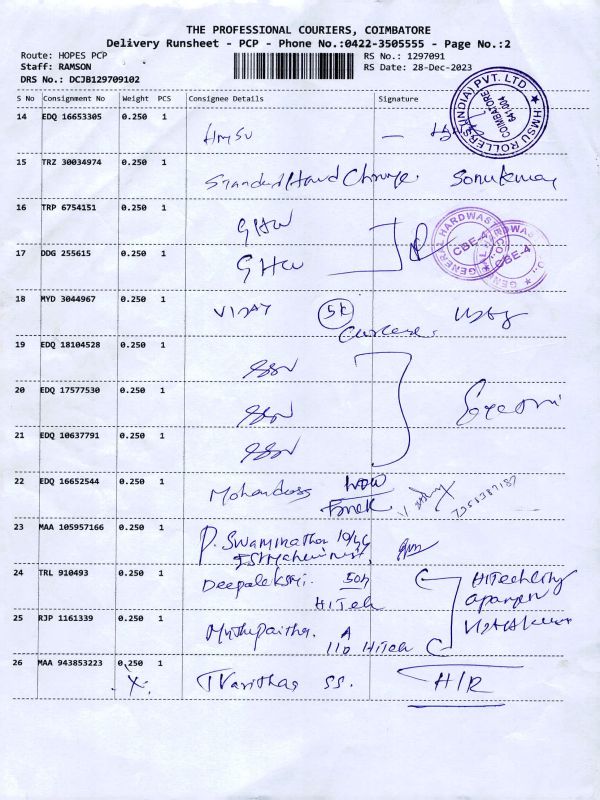 THE PROFESSIONAL COURIERS, COIMBATORE
Delivery Runsheet - PCP - Phone No.:0422-3505555 - Page No.:2
Route: HOPES PCP
Staff: RAMSON
DRS No.: DCJB129709102
RS No.: 1297091
RS Date: 28-Dec-2023
S No Consignment No Weight PCS Consignee Details Signature
14 EDQ 16653305 0.250 1 HMSU
HMSU ROLLERS (INDIA) PVT. LTD.
COIMBATORE
641 004
15 TRZ 30034974 0.250 1 Standard Hard Chrome. Sonukumar
16 TRP 6754151 0.250 1 GHW
GENERAL HARDWARES
CBE-4
17 DDG 255615 0.250 1 GHW
CBE-4
18 MYD 3044967 0.250 1 VIJAY SK
19 EDQ 18104528 0.250 1 SSN
20 EDQ 17577530 0.250 1 SSN
21 EDQ 10637791 0.250 1 SSN
22 EDQ 16652544 0.250 1 Mohandoss
23 MAA 105957166 0.250 1 P. Swaminathan
24 TRL 910493 0.250 1 Deepalekshmi. 507
HiTech
HiTech City
25 RJP 1161339 0.250 1 A
110 HiTech
26 MAA 943853223 0.250 1 T Kavithas SS. H/R
X